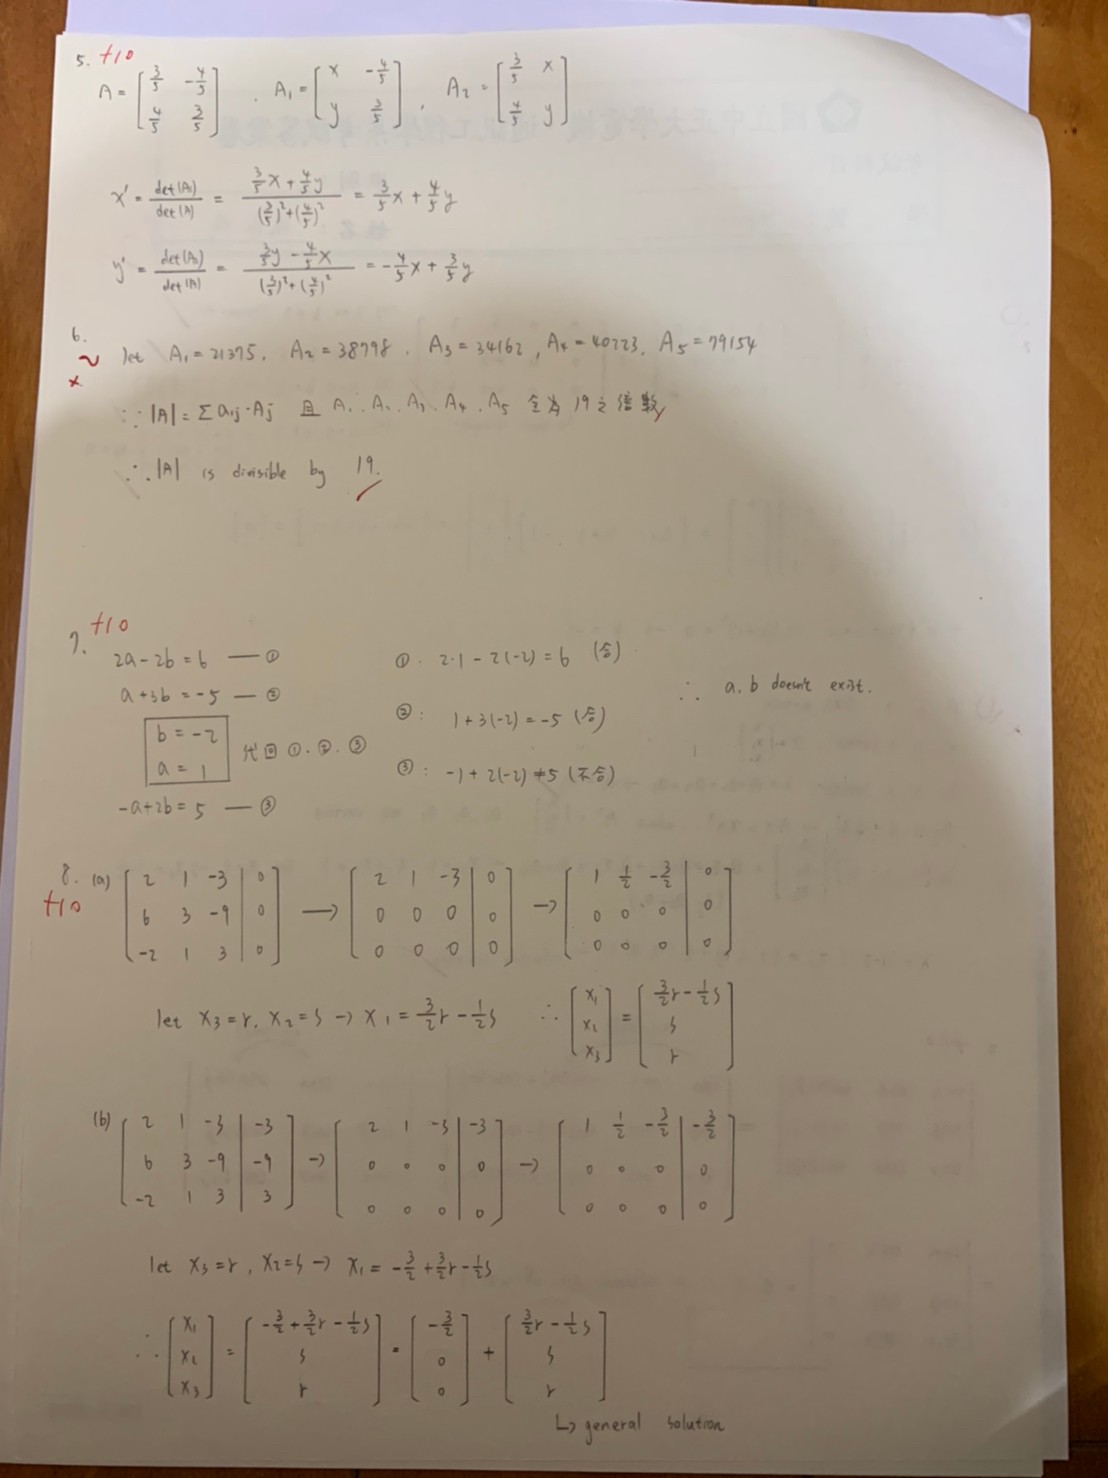 5. +10
A = [3/5 -4/5; 4/5 3/5] , A₁ = [x -4/5; y 3/5] , A₂ = [3/5 x; 4/5 y]
x' = det(A₁)/det(A) = (3/5 x + 4/5 y)/((3/5)² + (4/5)²) = 3/5 x + 4/5 y
y' = det(A₂)/det(A) = (3/5 y - 4/5 x)/((3/5)² + (4/5)²) = -4/5 x + 3/5 y
6.
let A₁ = 21375, A₂ = 38798, A₃ = 34162, A₄ = 40223, A₅ = 79154
∵ |A| = Σ a₁j · Aj 且 A₁, A₂, A₃, A₄, A₅ 全為 19 之倍數
∴ |A| is divisible by 19.
7. +10
2a - 2b = 6 — ①
a + 3b = -5 — ②
b = -2
a = 1
代回 ①, ②, ③
-a + 2b = 5 — ③
①. 2·1 - 2(-2) = 6 (合)
②: 1 + 3(-2) = -5 (合)
③: -1 + 2(-2) ≠ 5 (不合)
∴ a, b doesn't exist.
8. (a) [2 1 -3 | 0; 6 3 -9 | 0; -2 1 3 | 0] → [2 1 -3 | 0; 0 0 0 | 0; 0 0 0 | 0] → [1 1/2 -3/2 | 0; 0 0 0 | 0; 0 0 0 | 0]
+10
let x₃ = r, x₂ = s → x₁ = 3/2 r - 1/2 s ∴ [x₁; x₂; x₃] = [3/2 r - 1/2 s; s; r]
(b) [2 1 -3 | -3; 6 3 -9 | -9; -2 1 3 | 3] → [2 1 -3 | -3; 0 0 0 | 0; 0 0 0 | 0] → [1 1/2 -3/2 | -3/2; 0 0 0 | 0; 0 0 0 | 0]
let x₃ = r, x₂ = s → x₁ = -3/2 + 3/2 r - 1/2 s
∴ [x₁; x₂; x₃] = [-3/2 + 3/2 r - 1/2 s; s; r] = [-3/2; 0; 0] + [3/2 r - 1/2 s; s; r]
↳ general solution